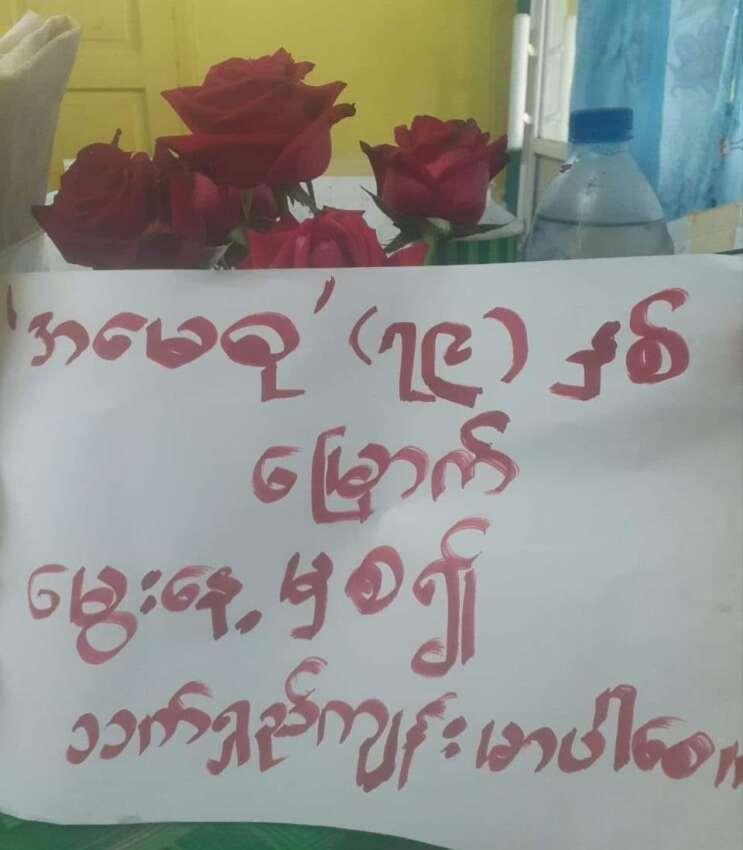 'အမေစု' (၇၉) နှစ်
မြောက်
မွေးနေ့မှစ၍
အသက်ရှည်ကျန်းမာပါစေ။